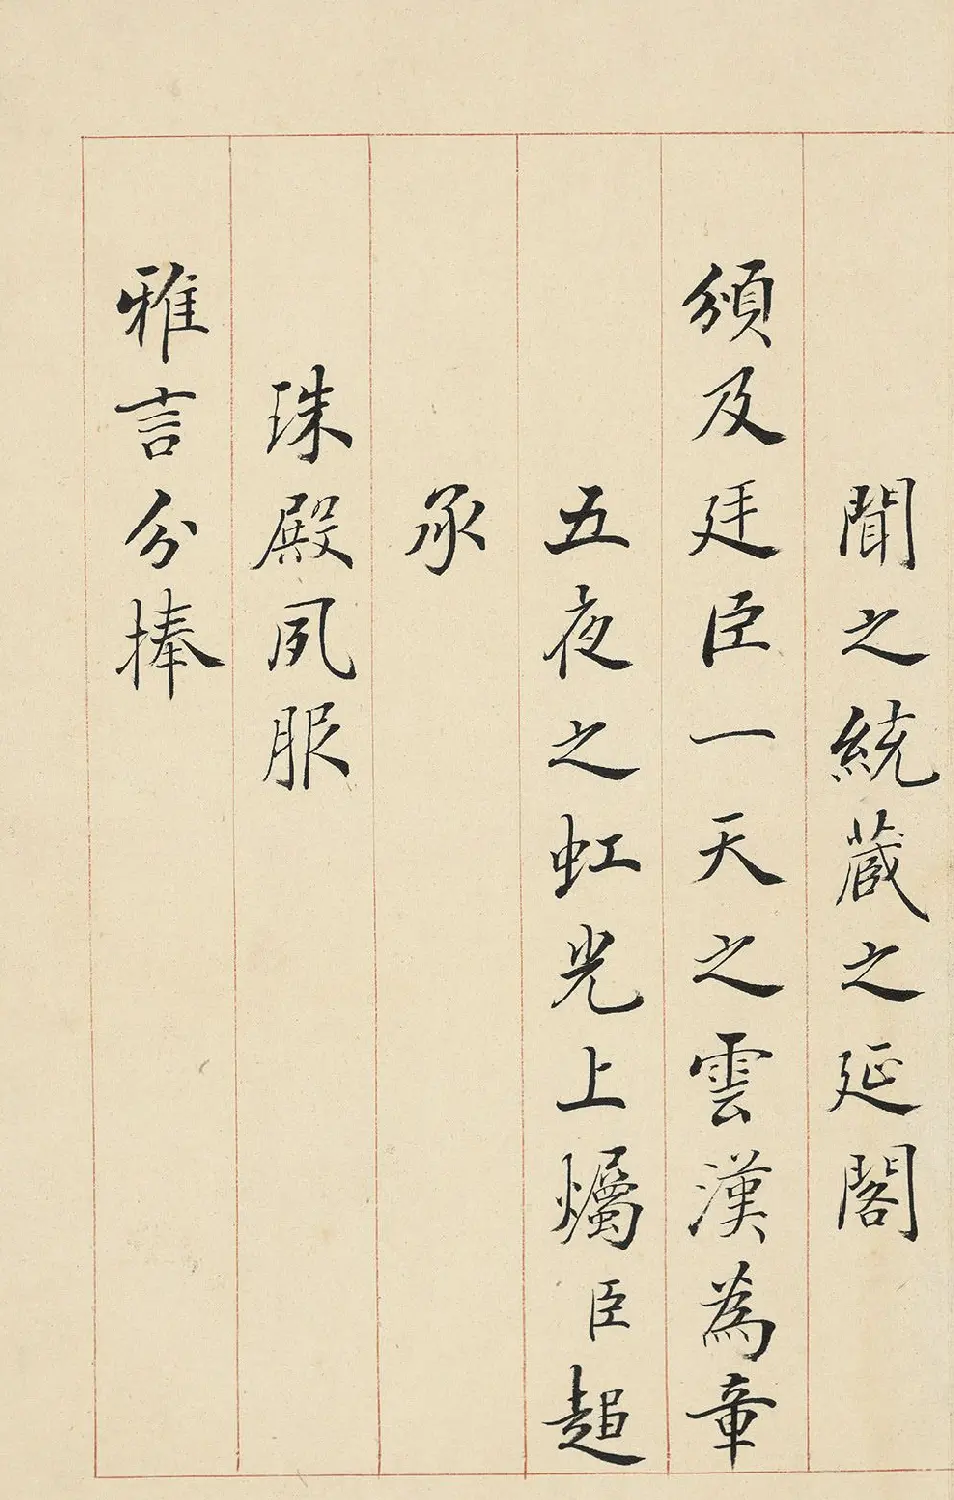 聞之統藏之延閣
頒及廷臣一天之雲漢為章
五夜之虹光上爥臣超
承
珠殿夙服
雅言分捧